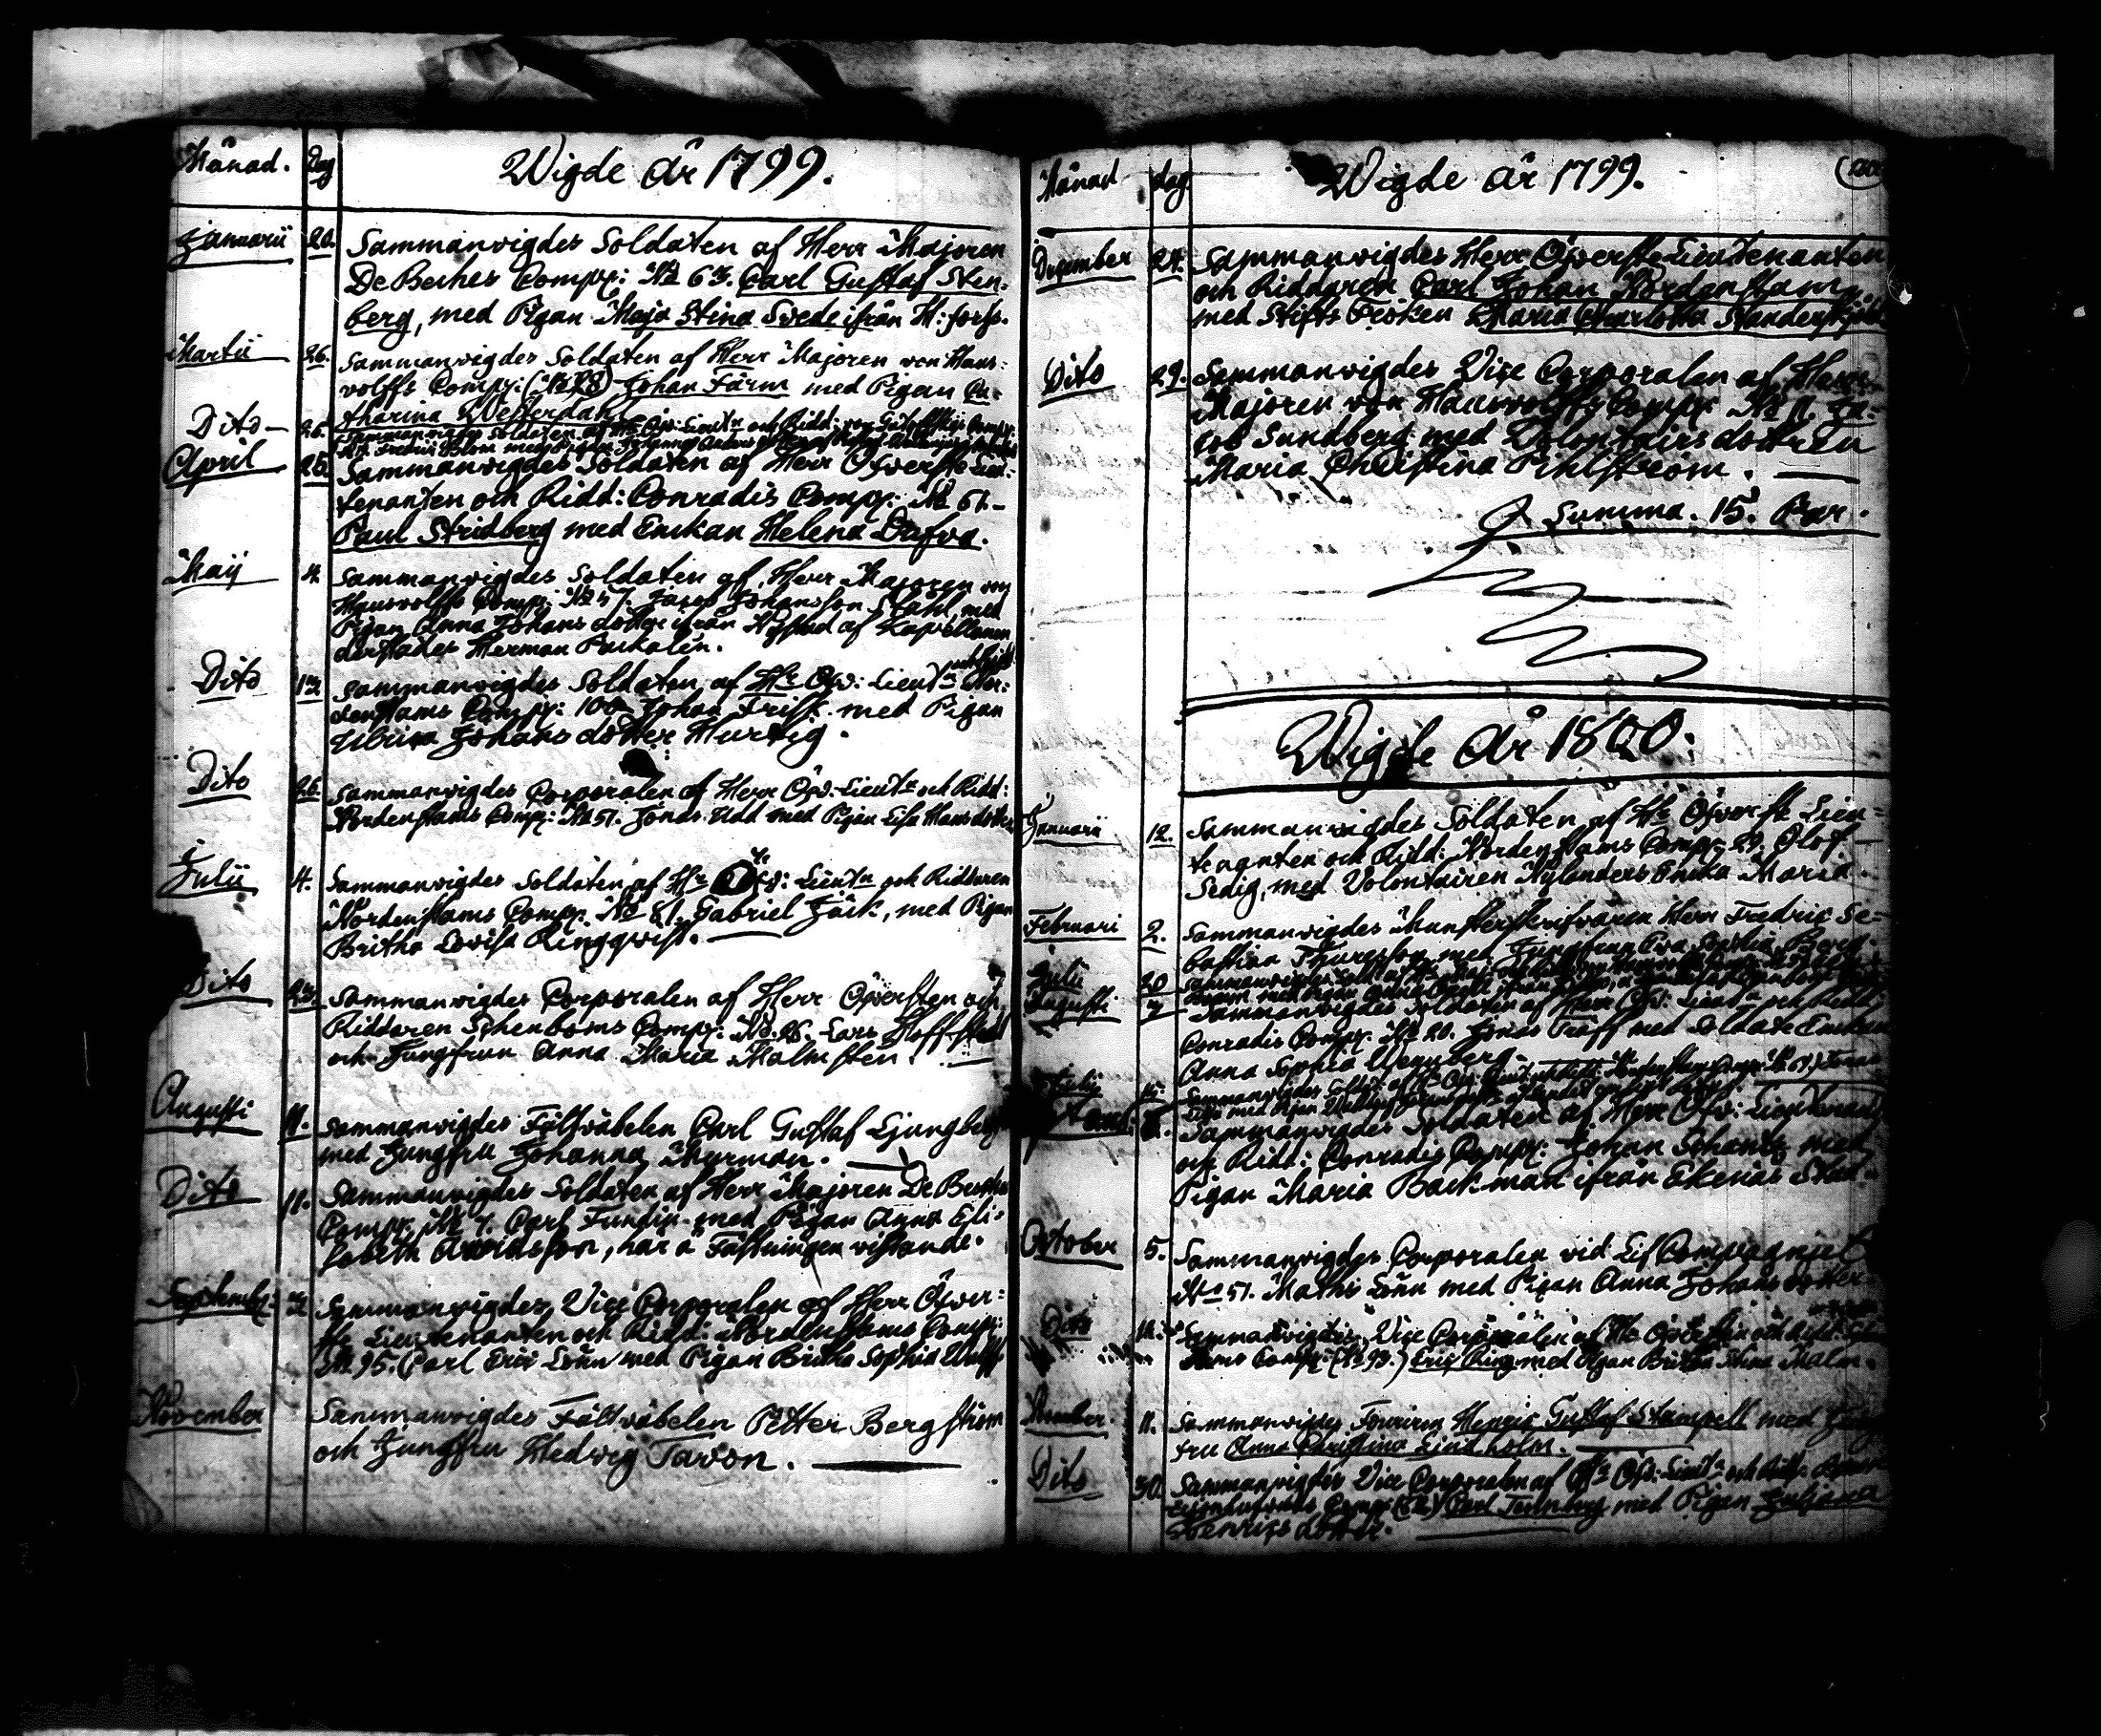 Månad. Dag Wigde år 1799.
Januarii 20. Sammanvigdes Soldaten af Herr Majoren
De Beches Comp: № 63. Carl Gustaf Sten-
berg, med Pigan Maja Stina Svede ifrån H:fors.
Martii 26. Sammanvigdes Soldaten af Herr Majoren von Haus-
volffs Comp: (№ 78) Johan Färm med Pigan Ca-
tharina Westerdahl
Dito 26. Sammanvigdes Soldaten af Hr Öfv: Lieutn och Ridd: von
Fredric Blom med Pigan
April 25. Sammanvigdes Soldaten af Herr Öfverste Lieu-
tenanten och Ridd: Conradis Comp: № 61.-
Paul Stridberg med Enkan Helena Dufva.
Maij 4. Sammanvigdes Soldaten af Herr Majoren von
Hausvolffs Comp: № 57. Jacob Johansson Stahl med
Pigan Anna Johans dotter ifrån Nystad af Kapellanen
derstädes Herman Packalén.
Dito 13. Sammanvigdes Soldaten af Hr Öfv: Lieutn och Ridd: Nor-
denstams Comp: 100 Johan Frisk med Pigan
Ulrica Johans dotter Hurtig.
Dito 26. Sammanvigdes Corporalen af Herr Öfv: Lieutn och Ridd:
Nordenstams Comp: № 51. Jonas Udd med Pigan Lisa Hans dotter
Julii 4. Sammanvigdes Soldaten af Hr Öfv: Lieutn och Riddaren
Nordenstams Comp: № 81. Gabriel Jäck, med Pigan
Britha Lovisa Ringqvist.
Dito 23. Sammanvigdes Corporalen af Herr Öfversten och
Riddaren Schenboms Comp: № 26. Lars Hoffstedt
och Jungfrun Anna Maria Malmsten.
Augusti 11. Sammanvigdes Fältväbelen Carl Gustaf Ljungberg
med Jungfru Johanna Murman.
Dito 11. Sammanvigdes Soldaten af Herr Majoren De Beches
Comp: № 7. Carl Fundin med Pigan Anna Eli-
sabeth Arvidsson, här å Fästningen vistande.
Septemb: Sammanvigdes Vice Corporalen af Herr Öfver-
ste Lieutenanten och Ridd: Nordenstams Comp:
№ 95. Carl Eric Lönn med Pigan Britha Sophia
November Sammanvigdes Fältväbelen Petter Bergström
och Jungfru Hedvig Tavon.
Månad dag Wigde år 1799.
December 24. Sammanvigdes Herr Öfverste Lieutenanten
och Riddaren Carl Johan Nordenstam
med Stifts Fröken Maria Charlotta Standertskjöld
Dito 29. Sammanvigdes Vice Corporalen af Herr
Majoren von Hausvolffs Comp: № 11. Ja-
cob Sundberg med Volontairs dottren
Maria Christina Pihlström.
Summa. 15. Par.
Wigde År 1800.
Januarii 12. Sammanvigdes Soldaten af Hr Öfverste Lieu-
tenanten och Ridd: Nordenstams Comp: 29. Olof
Sedig, med Volontairen Nylanders Enka Maria.
Februari 2. Sammanvigdes Munsterskrifvaren Herr Fredric Se-
bastian Thuresson med Jungfrun Eva Sophia Berg-
Julii 20 Sammanvigdes
Augusti 7 Sammanvigdes Soldaten af Herr Öfv: Lieutn och Ridd:
Conradis Comp: № 20. Jonas Träff med Soldate Enkan
Anna Sophia Wennberg.
Julij 15. Sammanvigdes Soldat: af Hr Öfv: Lieutn och Ridd: Nordenstams Comp: № 69.)
med Pigan
Sammanvigdes Soldaten af Herr Öfv: Lieutenan
och Ridd: Conradis Comp: Johan Schantz med
Pigan Maria Backman ifrån Ekenäs Stad.
October 5. Sammanvigdes Corporalen vid Lif Compagniet
№ 51. Maths Lönn med Pigan Anna Johans dotter
Dito 12. Sammanvigdes Vice Corporalen af Hr Öfversten och Ridd:
Comp: (№ 93.) Eric Ring med Pigan Britha Stina Malm.
November. 11. Sammanvigdes Fouriren Henric Gustaf Stampell med Jung-
fru Anna Christina Lindholm.
Dito 30. Sammanvigdes Vice Corporalen af Hr Öfv: Lieutn och Ridd:
Comp: Carl Ternberg med Pigan Juliana
Henrics dotter.